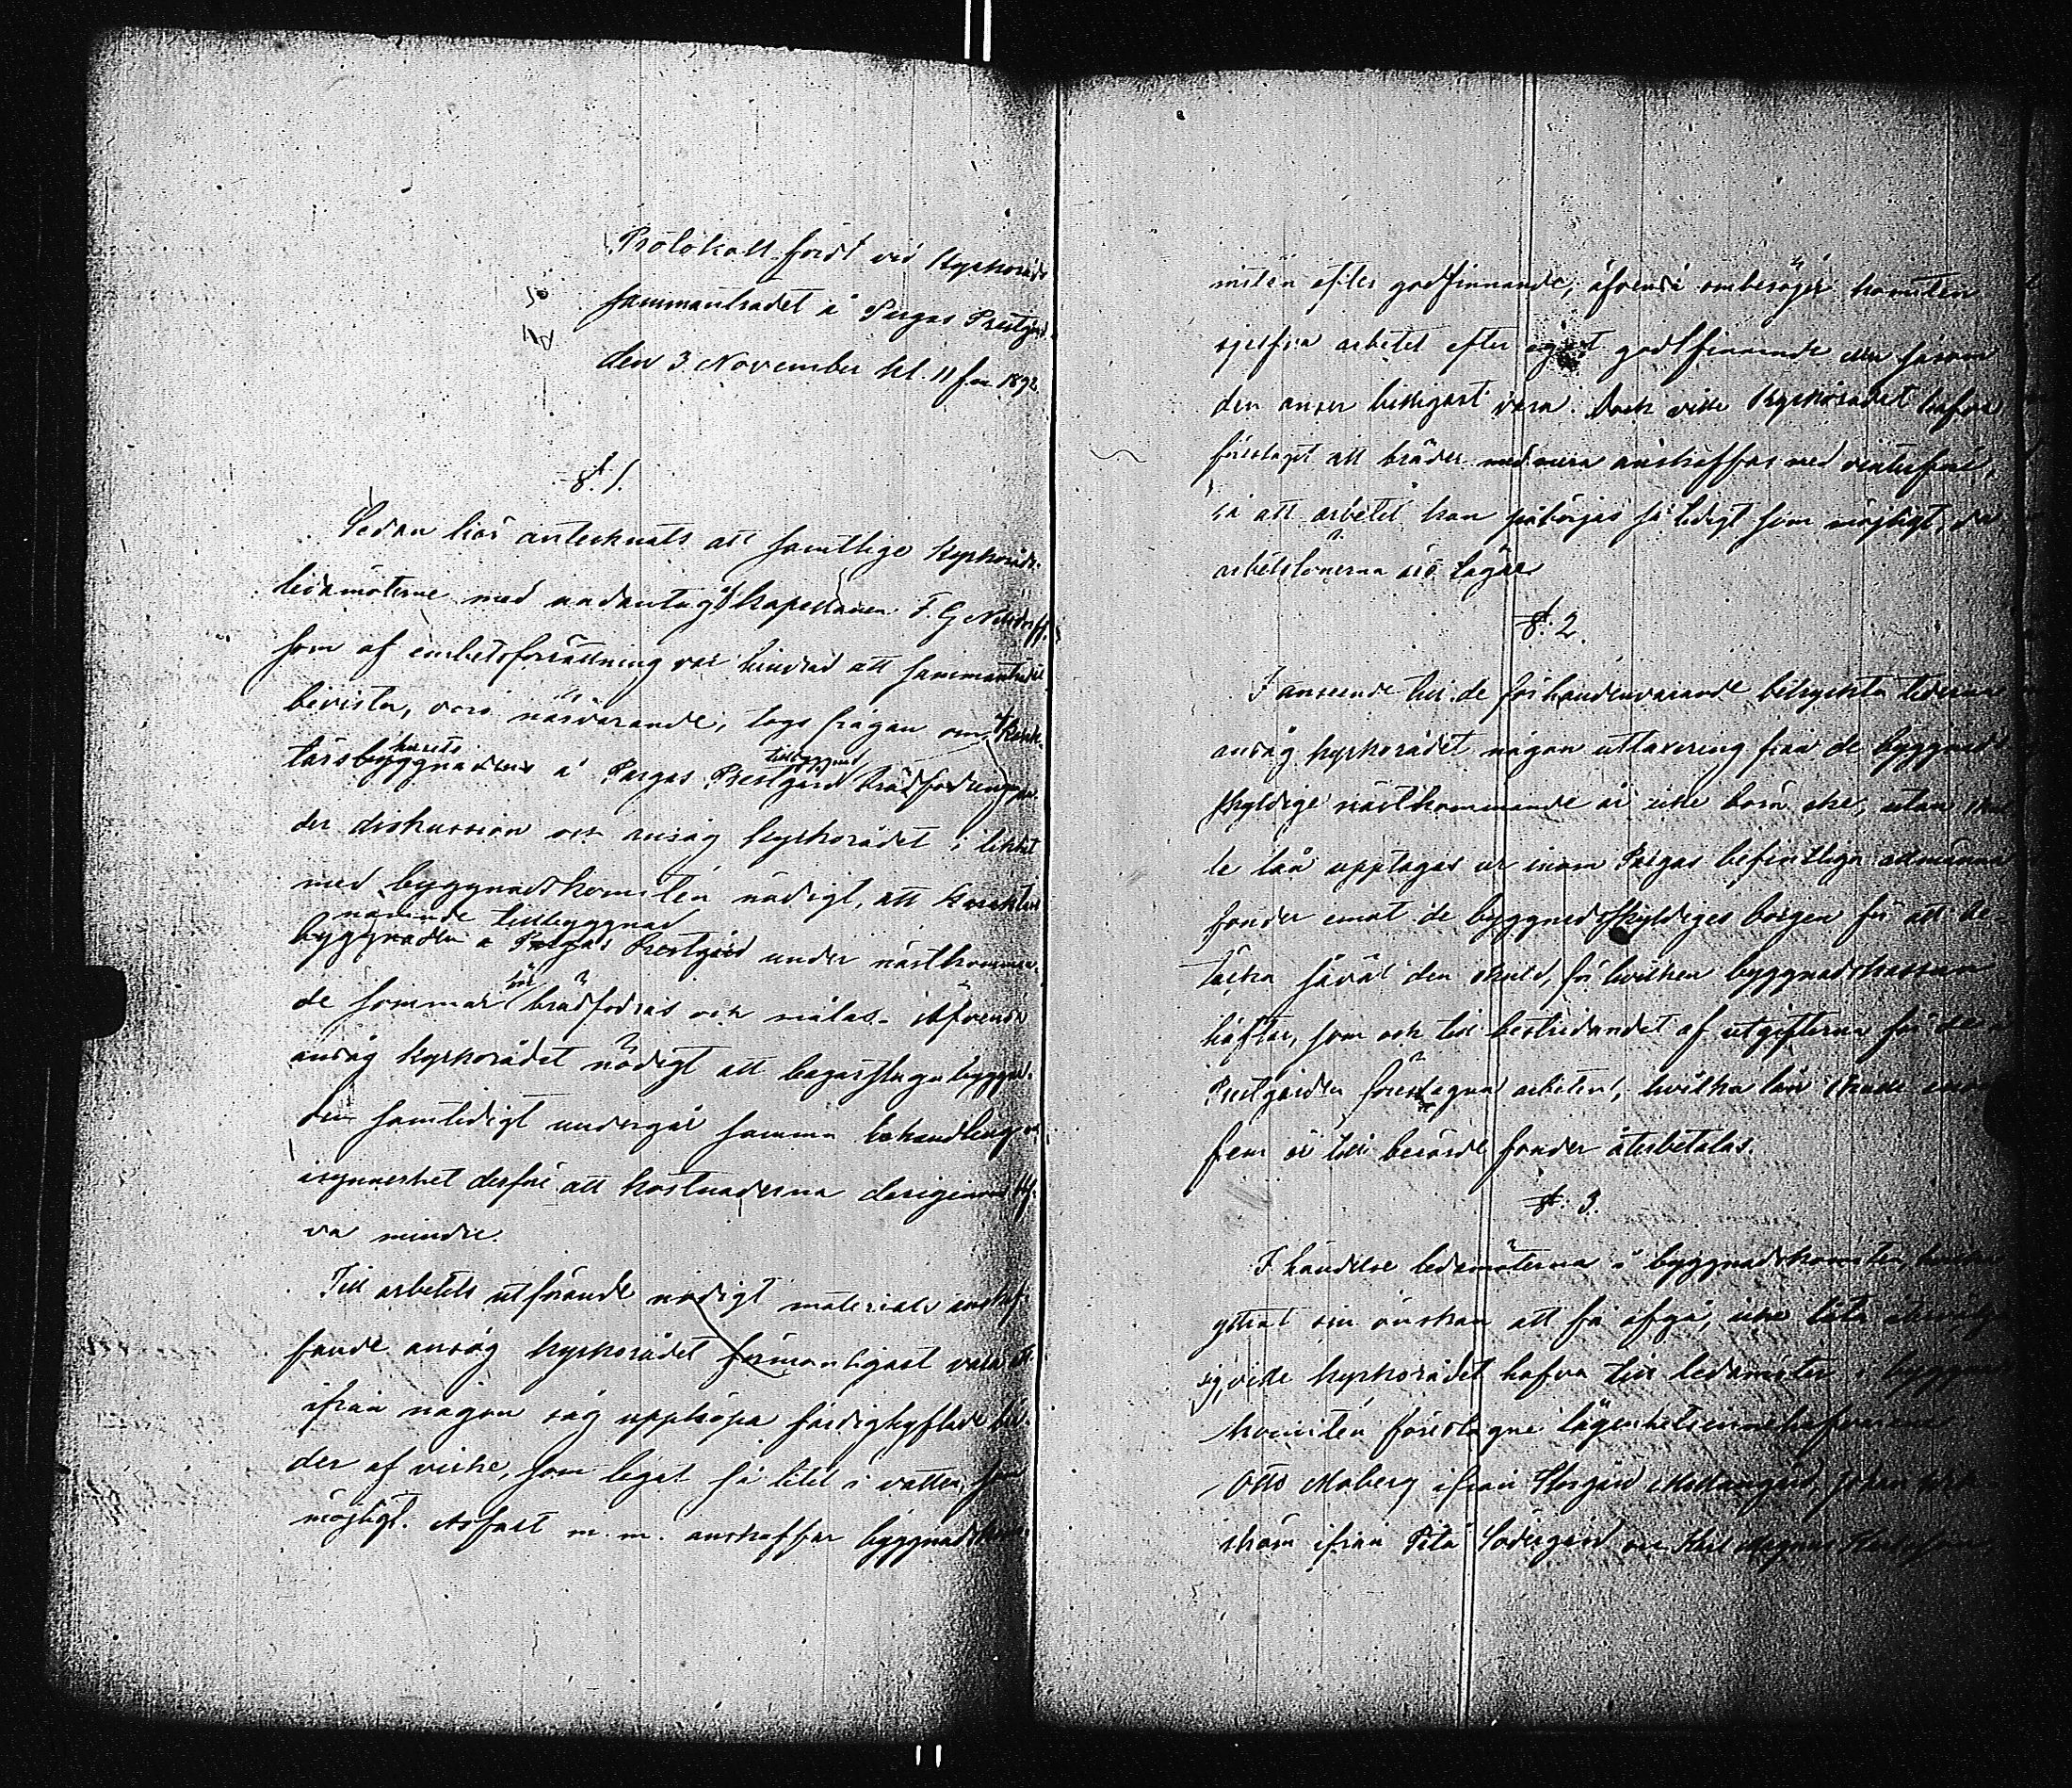 Protokoll fördt vid Kyrkoråds
sammanträdet å Pargas Prestgård
den 3 November kl. 11 f.m. 1892.
§. 1.
Sedan här antecknats att samtlige Kyrkoråds
ledamöterne med undantag af kapellanen F. G.
som af embetsförrättning var hindrad att sammanträdet
bevista, voro närvarande, togs frågan om Karak-
tärsbyggnadens husets å Pargas Prestgård tillbyggnad brädfodring un-
der diskussion och ansåg kyrkorådet i likhet
med byggnadskomitén nödigt, att karakters
nämnde tillbyggnad
byggnaden å Pargas Prestgård under nästkomman-
de sommar brädfodras och målas. Äfvenså
ansåg kyrkorådet nödigt att bagarstugubyggna-
den samtidigt undergår samma behandling
isynnerhet derför att kostnaderna derigenom blif-
va mindre.
Till arbetets utförande nödigt materials anskaf-
fande ansåg kyrkorådet förmånligast vara att
ifrån någon såg uppköpa färdighyflade brä-
der af virke, som legat så litet i vatten, som
möjligt. Asfalt m. m. anskaffar byggnadskom-
mitén efter godtfinnande, äfvenså ombesörjer komitén
sjelfva arbetet efter eget godtfinnande eller såsom
den anser billigast vara. Dock ville Kyrkorådet hafva
föreslaget att bräder med mera anskaffas med vinterföre,
så att arbetet kan påbörjas så tidigt som möjligt, då
arbetslönerna äro lägre.
§. 2.
I anseende till de för handenvarande betryckta tiderna
ansåg kyrkorådet någon uttaxering från de byggnads
skyldige nästkommande år icke böra ske, utan skul-
le lån upptagas ur inom Pargas befintliga allmänna
fonder emot de byggnadsskyldiges borgen för att be-
täcka såväl den skuld, för hvilken byggnadskassan
häftar, som och till bestridandet af utgifterna för de å
Prestgården föredtagna arbeten, hvilka lån skulle inom
fem år till berörde fonder återbetalas.
§. 3.
I händelse ledamöterna i byggnadskomitén,
yttrat sin önskan att få afgå, icke låta
sig, ville kyrkorådet hafva till ledamöter i byggnads
komitén föreslagne lägenhetsinnehafvarena
Otto Moberg ifrån Storgård Mellangård, Johan
ström ifrån Södergård och Karl Magnus Karlsson